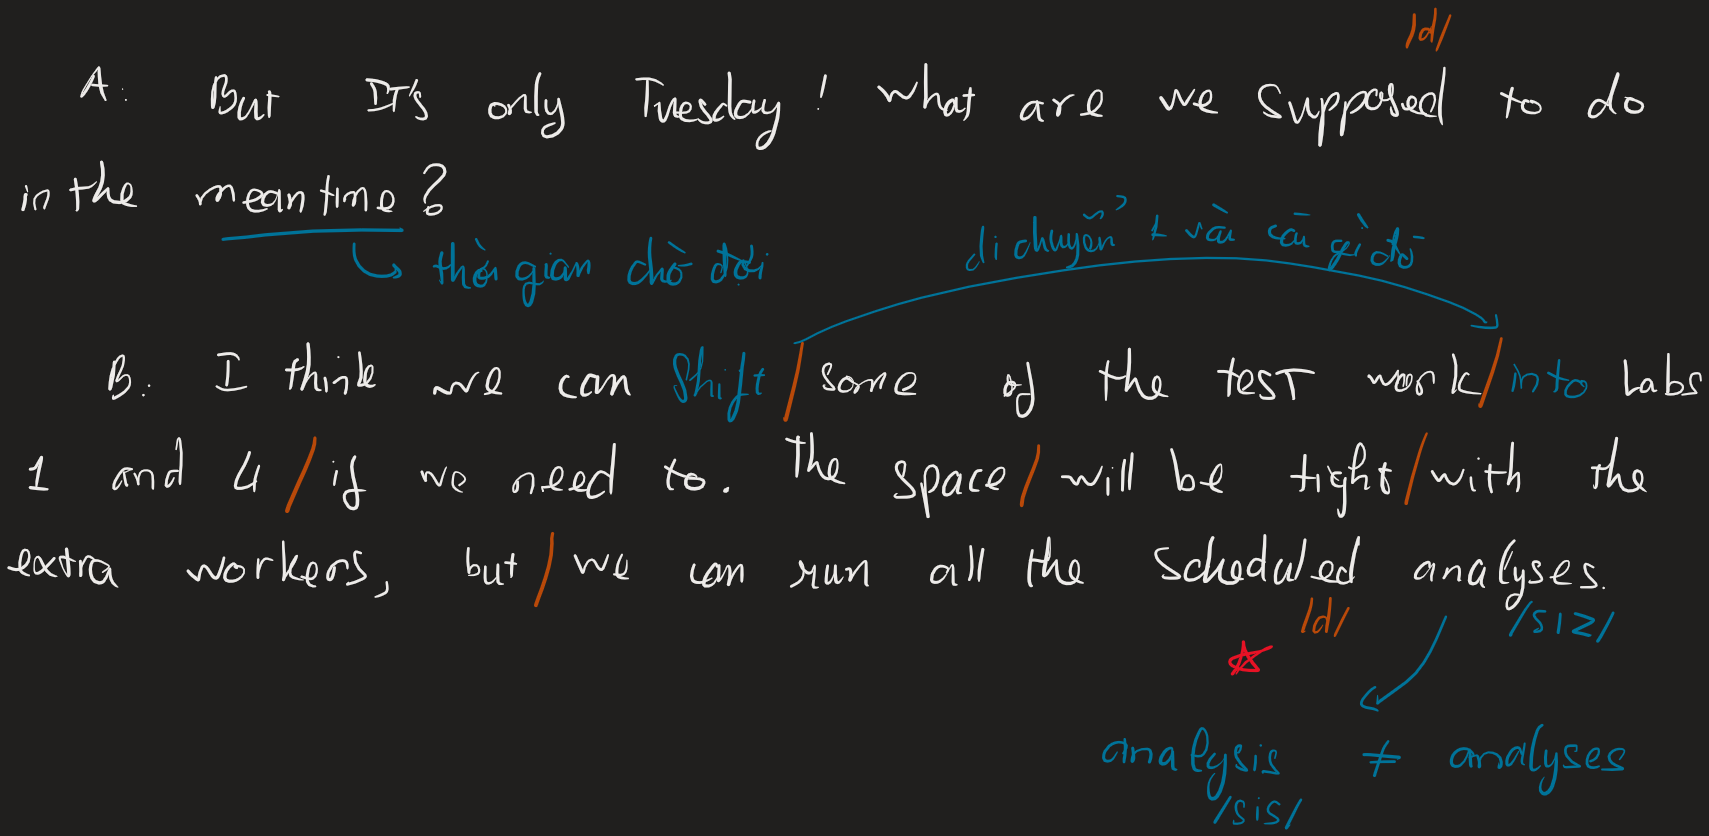 /d/
A: But It's only Tuesday! What are we supposed to do
in the meantime?
di chuyển 1 vài cái gì đó
thời gian chờ đợi
B: I think we can shift / some of the test work / into Labs
1 and 4 / if we need to. The space / will be tight / with the
extra workers, but / we can run all the scheduled analyses.
/d/ /sɪz/
analysis ≠ analyses
/sis/